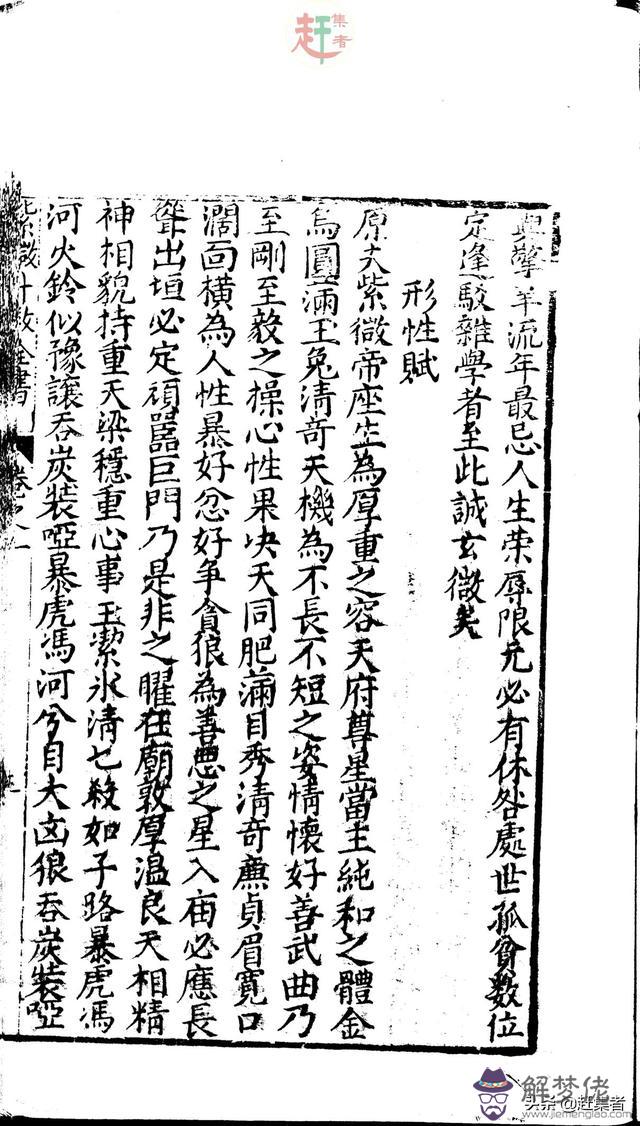 赶集者
與擎羊流年最忌人生荣辱限元必有休咎處世孤貧數位
定逢駁雜學者至此誠玄微矣
形性賦
原夫紫微帝座生為厚重之容天府尊星當主純和之體金
烏圓滿玉兔清奇天機為不長不短之姿情懷好善武曲乃
至剛至毅之操心性果决天同肥滿目秀清奇亷貞眉寬口
濶面橫為人性暴好忿好争貪狼為善惡之星入庙必應長
聳出垣必定頑嚚巨門乃是非之曜在廟敦厚温良天相精
神相貌持重天梁穩重心事玉潔氷清七殺如子路暴虎馮
河火鈴似豫讓吞炭裝啞暴虎馮河兮目大凶狼吞炭裝啞
紫微斗数全書 卷之一
解梦佬
www.jiemenglao.com
头条@赶集者